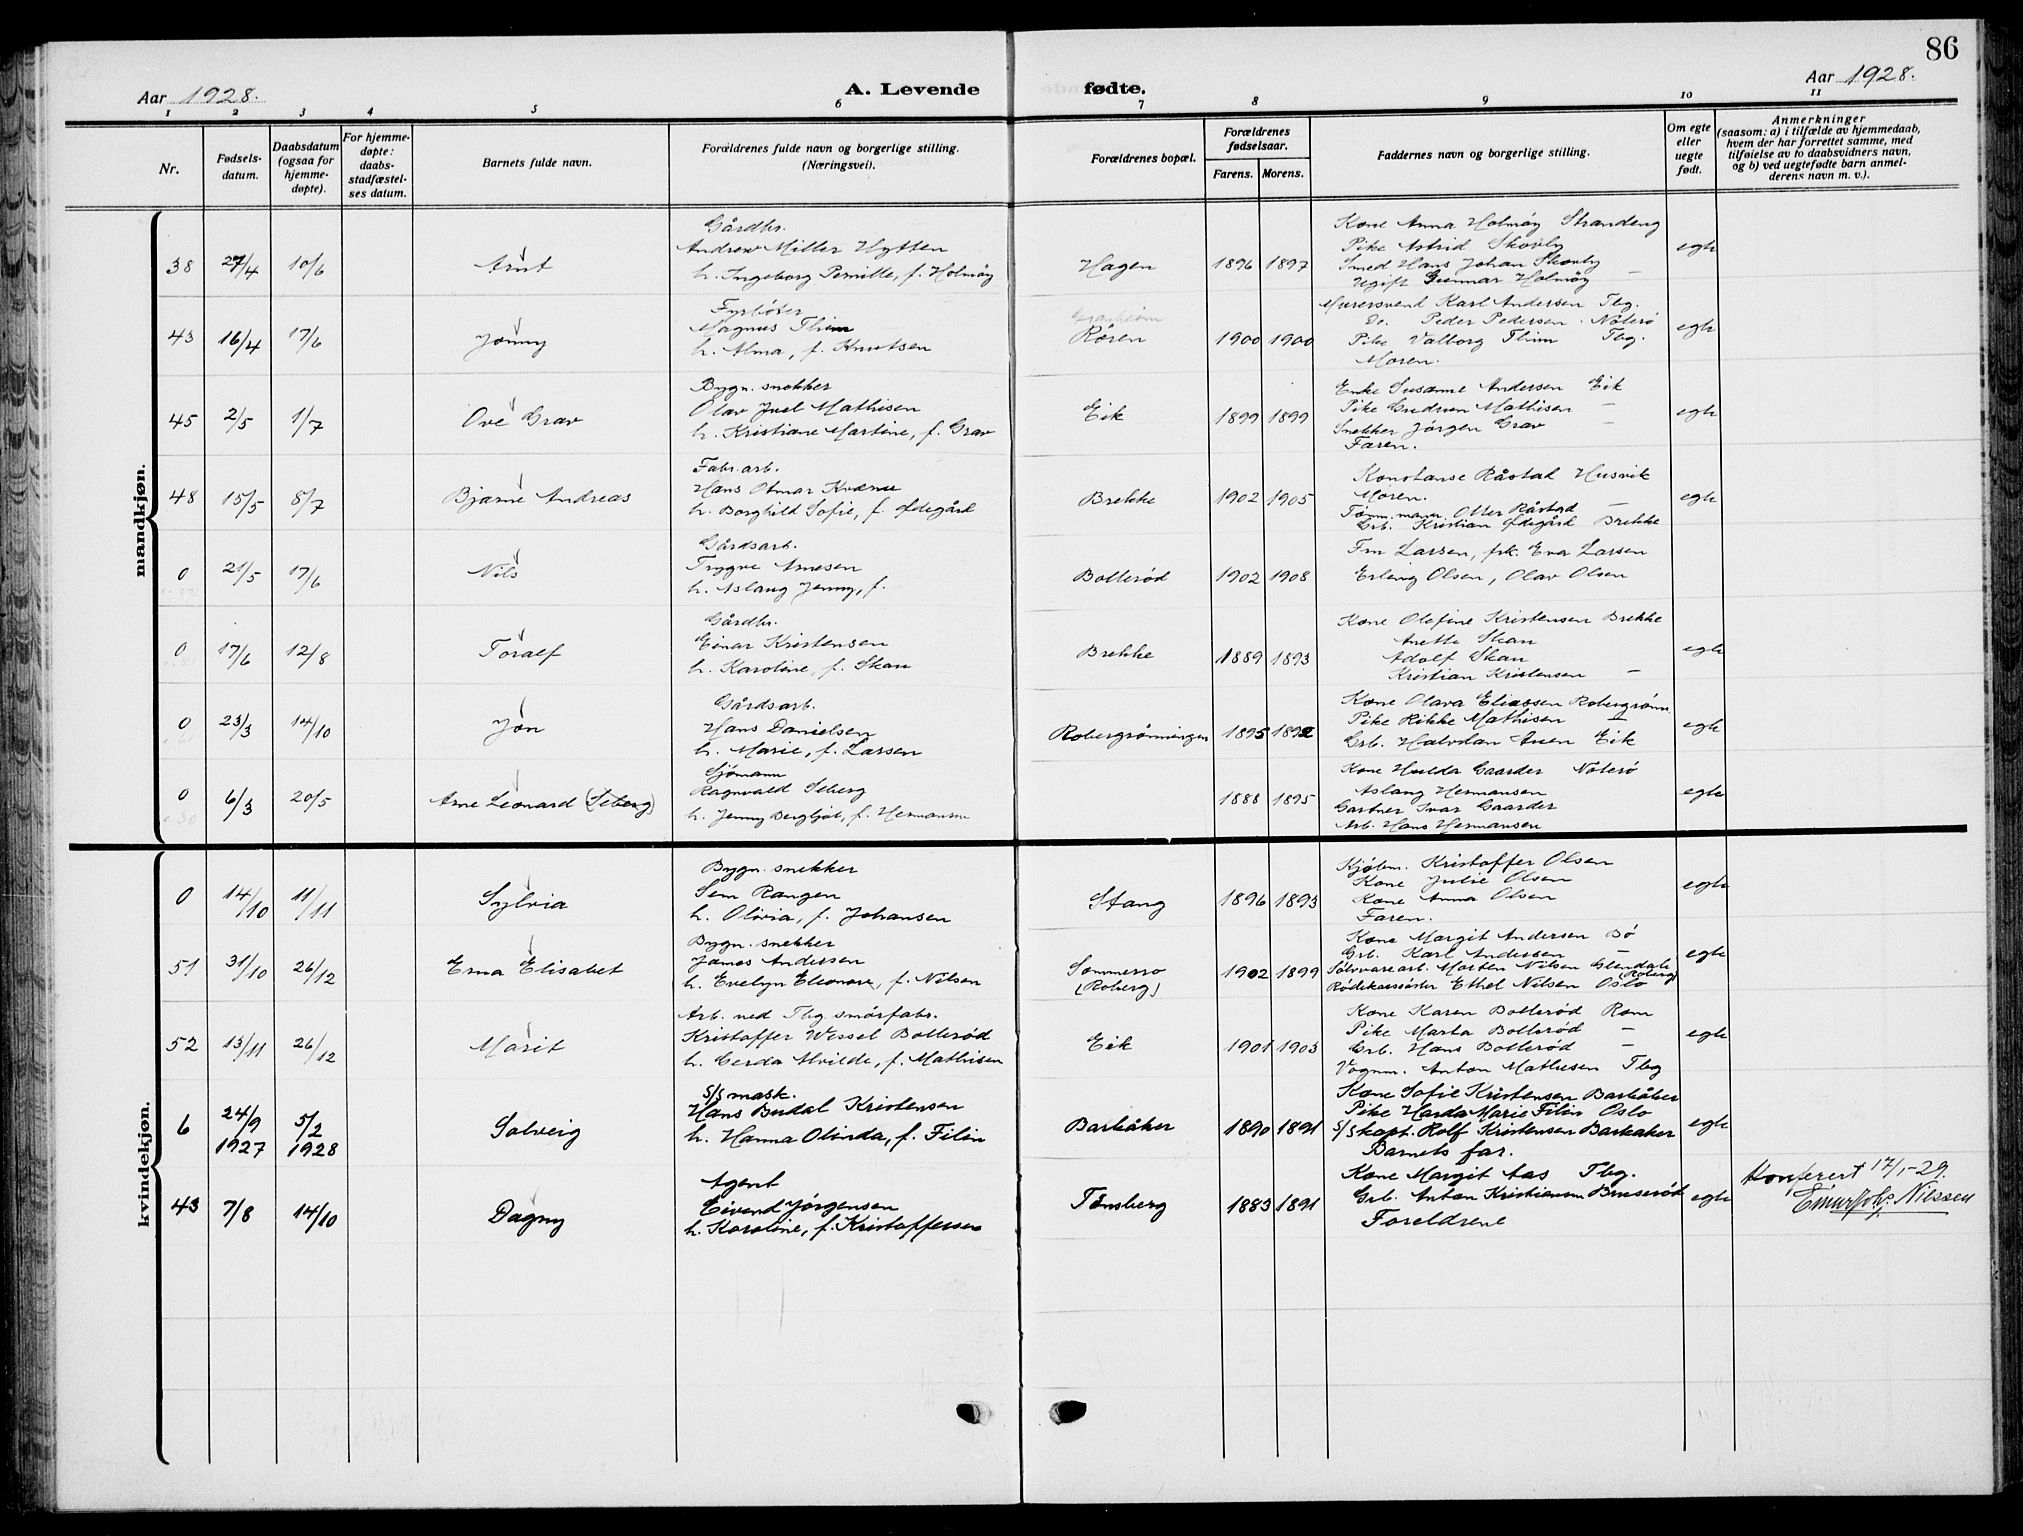 86
Aar 1928.
A. Levende fødte.
Aar 1928.
1 2 3 4 5 6 7 8 9 10 11
Nr.
Fødsels-
datum.
Daabsdatum
(ogsaa for
hjemme-
døpte).
For hjemme-
døpte:
daabs-
stadfæstel-
ses datum.
Barnets fulde navn.
Forældrenes fulde navn og borgerlige stilling.
(Næringsvei).
Forældrenes bopæl.
Forældrenes
fødselsaar.
Farens. Morens.
Faddernes navn og borgerlige stilling.
Om egte
eller
uegte
født.
Anmerkninger
(saasom: a) i tilfælde av hjemmedaab,
hvem der har forrettet samme, med
tilføielse av to daabsvidners navn,
og b) ved uegtefødte barn anmel-
derens navn m. v.).
mandkjøn.
38 27/4 10/6 Arnt
Gårdbr.
Andrew Miller Hytten
h. Ingeborg Pernille, f. Holmøy
Hagen 1896 1897
Kone Anna Holmøy Strandeng
Pike Astrid Skovly
Smed Hans Johan Skovly
Ugift Gunnar Holmøy —
egte
43 16/4 17/6 Jonny
Fyrbøter
Magnus Thim
h. Alma, f. Knutsen
Røren 1900 1900
Murersvend Karl Andersen Tbg.
Do. Peder Pedersen. Nøterø
Pike Valborg Thim Tbg.
Moren.
egte
45 2/5 1/7 Ove Grav
Bygn. snekker
Olav Juel Mathisen
h. Kristiane Martine, f. Grav
Eik 1899 1899
Enke Susanne Andersen Eik
Pike Gudrun Mathisen —
Snekker Jørgen Grav —
Faren.
egte
48 15/5 8/7 Bjarne Andreas
Fabr. arb.
Hans Otmar Kværne
h. Borghild Sofie, f. Ødegård
Brekke 1902 1905
Konstanse Råstad Husvik
Moren.
Tømm. mann Otter Råstad —
Grb. Kristian Ødegård Brekke
egte
0 21/5 17/6 Nils
Gårdsarb.
Trygve Arnesen
h. Aslaug Jenny, f.
Bollerød 1902 1908
Fru Larsen, frk. Eva Larsen
Erling Olsen, Olav Olsen
0 17/6 12/8 Toralf
Gårdbr.
Einar Kristensen
h. Karoline, f. Skau
Brekke 1889 1893
Kone Olefine Kristensen Brekke
Anette Skau
Adolf Skau
Kristian Kristensen —
egte
0 23/3 14/10 Jon
Gårdsarb.
Hans Danielsen
h. Marie, f. Larsen
Robergrønningen 1895 1892
Kone Olava Eliassen Robergrønn.
Pike Rikke Mathisen —
Grb. Halvdan Auen Eik
egte
0 6/3 20/5 Arne Leonard (Seberg)
Sjømann
Ragnvald Seberg
h. Jenny Bergljot, f. Hermansen
1888 1895
Kone Hulda Gaarder Nøterø
Aslaug Hermansen
Gartner Ivar Gaarder
Arb. Hans Hermansen
egte
kvindekjøn.
0 14/10 11/11 Sylvia
Bygn. snekker
Sem Rangen
h. Olivia, f. Johansen
Stang 1896 1893
Kjøbm. Kristoffer Olsen
Kone Julie Olsen
Kone Anna Olsen
Faren.
egte
51 31/10 26/12 Erna Elisabet
Bygn. snekker
James Andersen
h. Evelyn Eleonore, f. Nilsen
Sommerro
(Roberg)
1902 1899
Kone Margit Andersen Bø
Grb. Karl Andersen —
Sølvvarearb. Morten Nilsen Glendale
(Roberg)
Rødekorssøster Ethel Nilsen Oslo
egte
52 13/11 26/12 Marit
Arb. ved Tbg. smørfabr.
Kristoffer Wessel Bollerød
h. Gerda Alvilde, f. Mathisen
Eik 1901 1903
Kone Karen Bollerød Rom
Pike Marta Bollerød —
Grb. Hans Bollerød —
Vognm. Anton Mathisen Tbg
egte
6 24/9 1927 5/2 1928 Solveig
S/S mask.
Hans Budal Kristensen
h. Hanna Olinda, f. Filin
Barkåker 1890 1891
Kone Sofie Kristensen Barkåker
Pike Harda Marie Filin Oslo
S/S kapt. Rolf Kristensen Barkåker
Barnets far.
egte
43 7/8 14/10 Dagny
Agent
Eivend Jørgensen
h. Karoline, f. Kristoffersen
Tønsberg 1883 1891
Kone Margit Aas Tbg.
Grb. Anton Kristiansen Bruserød
Foreldrene
egte
Konferert 17/1-29.
Einar Johs. Nilssen